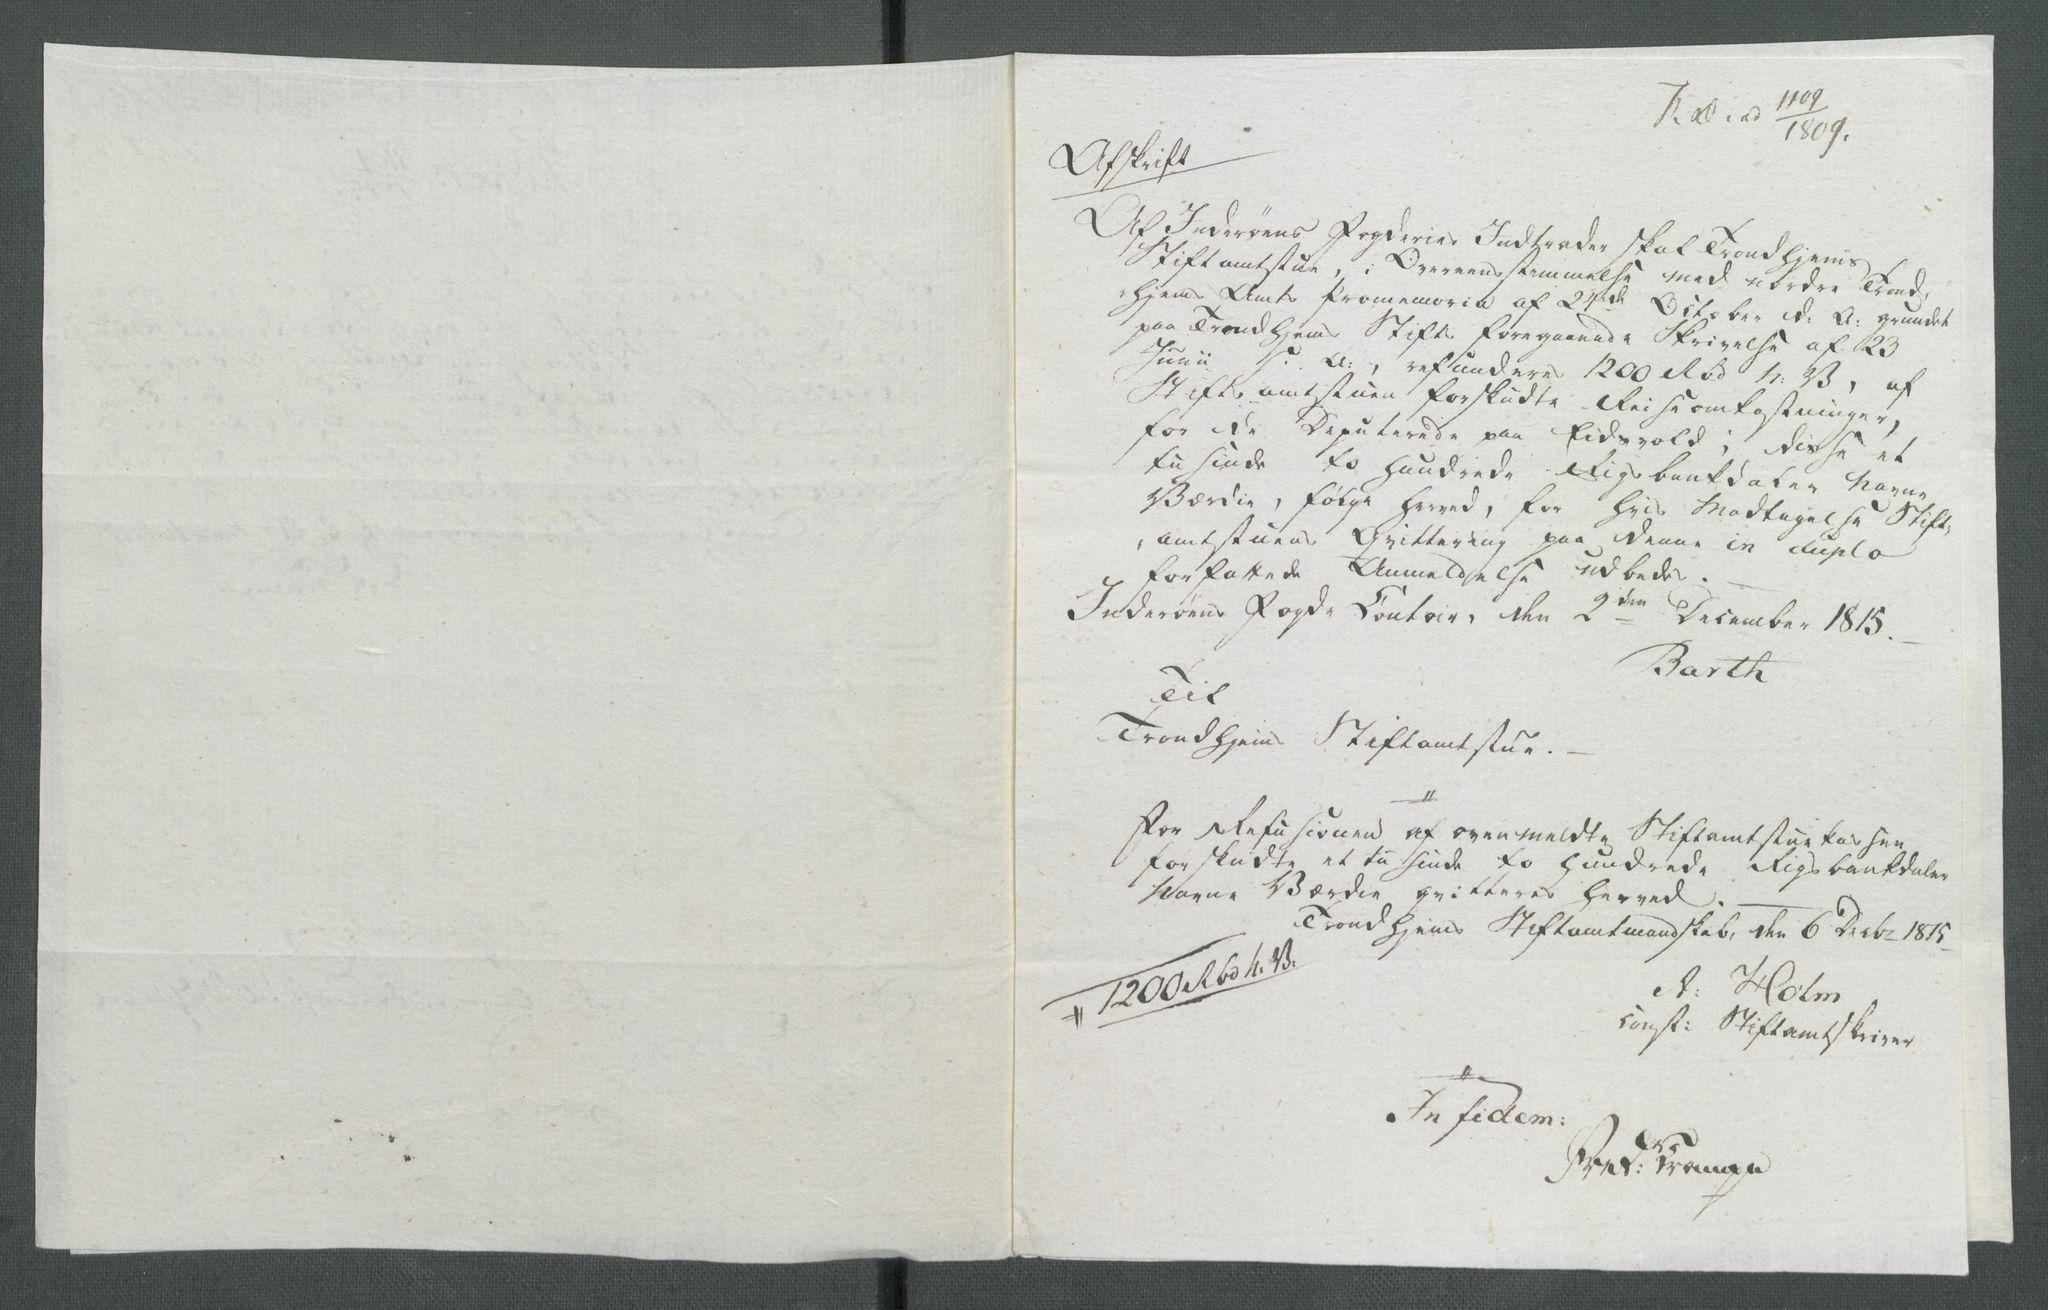 1109
1809.
Afskrift
Af Inderöens Fogderies Indtræder skal Trondhjems
Stiftamtstue, i Overeensstemmelse med nordre Trond,
hjems Amts Promemoria af 24de October d. A: grundet
paa Trondhjems Stifts foregaaende Skrivelse af 23
Junii s. A:, refundere 1200 Rbd N: V, af
Stiftsamtstuen forskudte Reiseomkostninger,
for de Deputerede paa Eidsvold; disse et
tusinde to hundrede Rigsbankdaler Navne
Værdie, fölge herved, for hvis Modtagelse Stift,
,amtstuens Qvittering paa denne in duplo
forfattede Anmeldelse udbedes. —
Inderöens Fogde Contoir, den 2den December 1815. —
Barth
Til
Trondhjems Stiftamtstue. —
For Refusionen af ovenmeldte Stiftamtstuekassen
forskudte et tusinde to hundrede Rigsbankdaler
Navne Værdie qvitteres herved. —
Trondhjems Stiftamtmandskab, den 6 Decbr 1815
1200 Rbd N. V.
A: Holm
const: Stiftamtskriver
In fidem:
Fred: Trampe